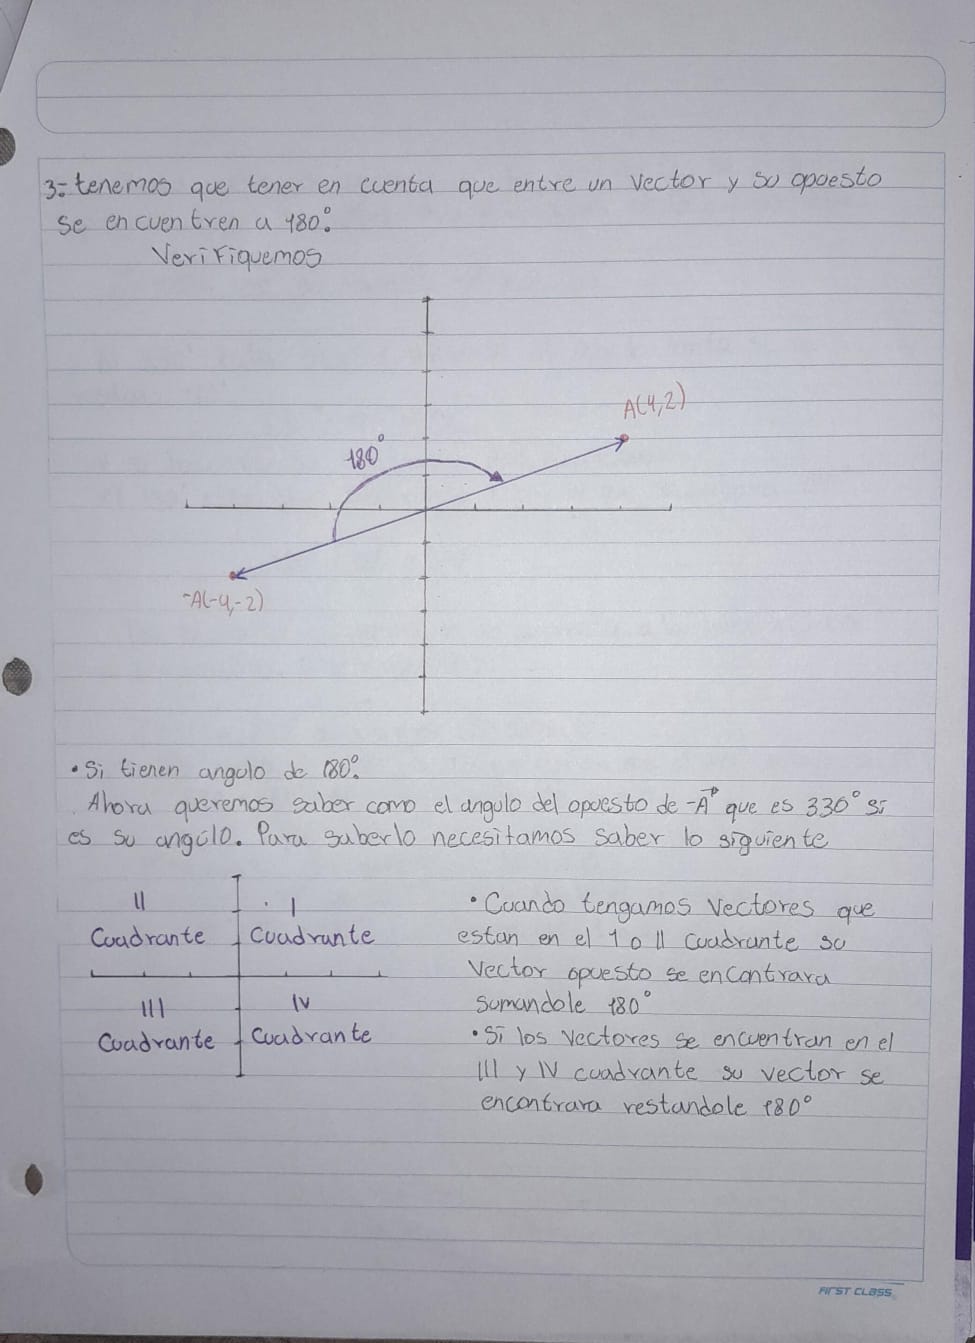 3= tenemos que tener en cuenta que entre un Vector y su opuesto
se encuentren a 180°.
Verifiquemos
A(4,2)
180°
-A(-4,-2)
• Si tienen angulo de 180°.
Ahora queremos saber como el angulo del opuesto de -A que es 330° si
es su angulo. Para saberlo necesitamos saber lo siguiente
II
Cuadrante
I
Cuadrante
III
Cuadrante
IV
Cuadrante
• Cuando tengamos Vectores que
estan en el 1 o II cuadrante su
Vector opuesto se encontrara
sumandole 180°
• Si los Vectores se encuentran en el
III y IV cuadrante su vector se
encontrara restandole 180°
FIRST CLASS